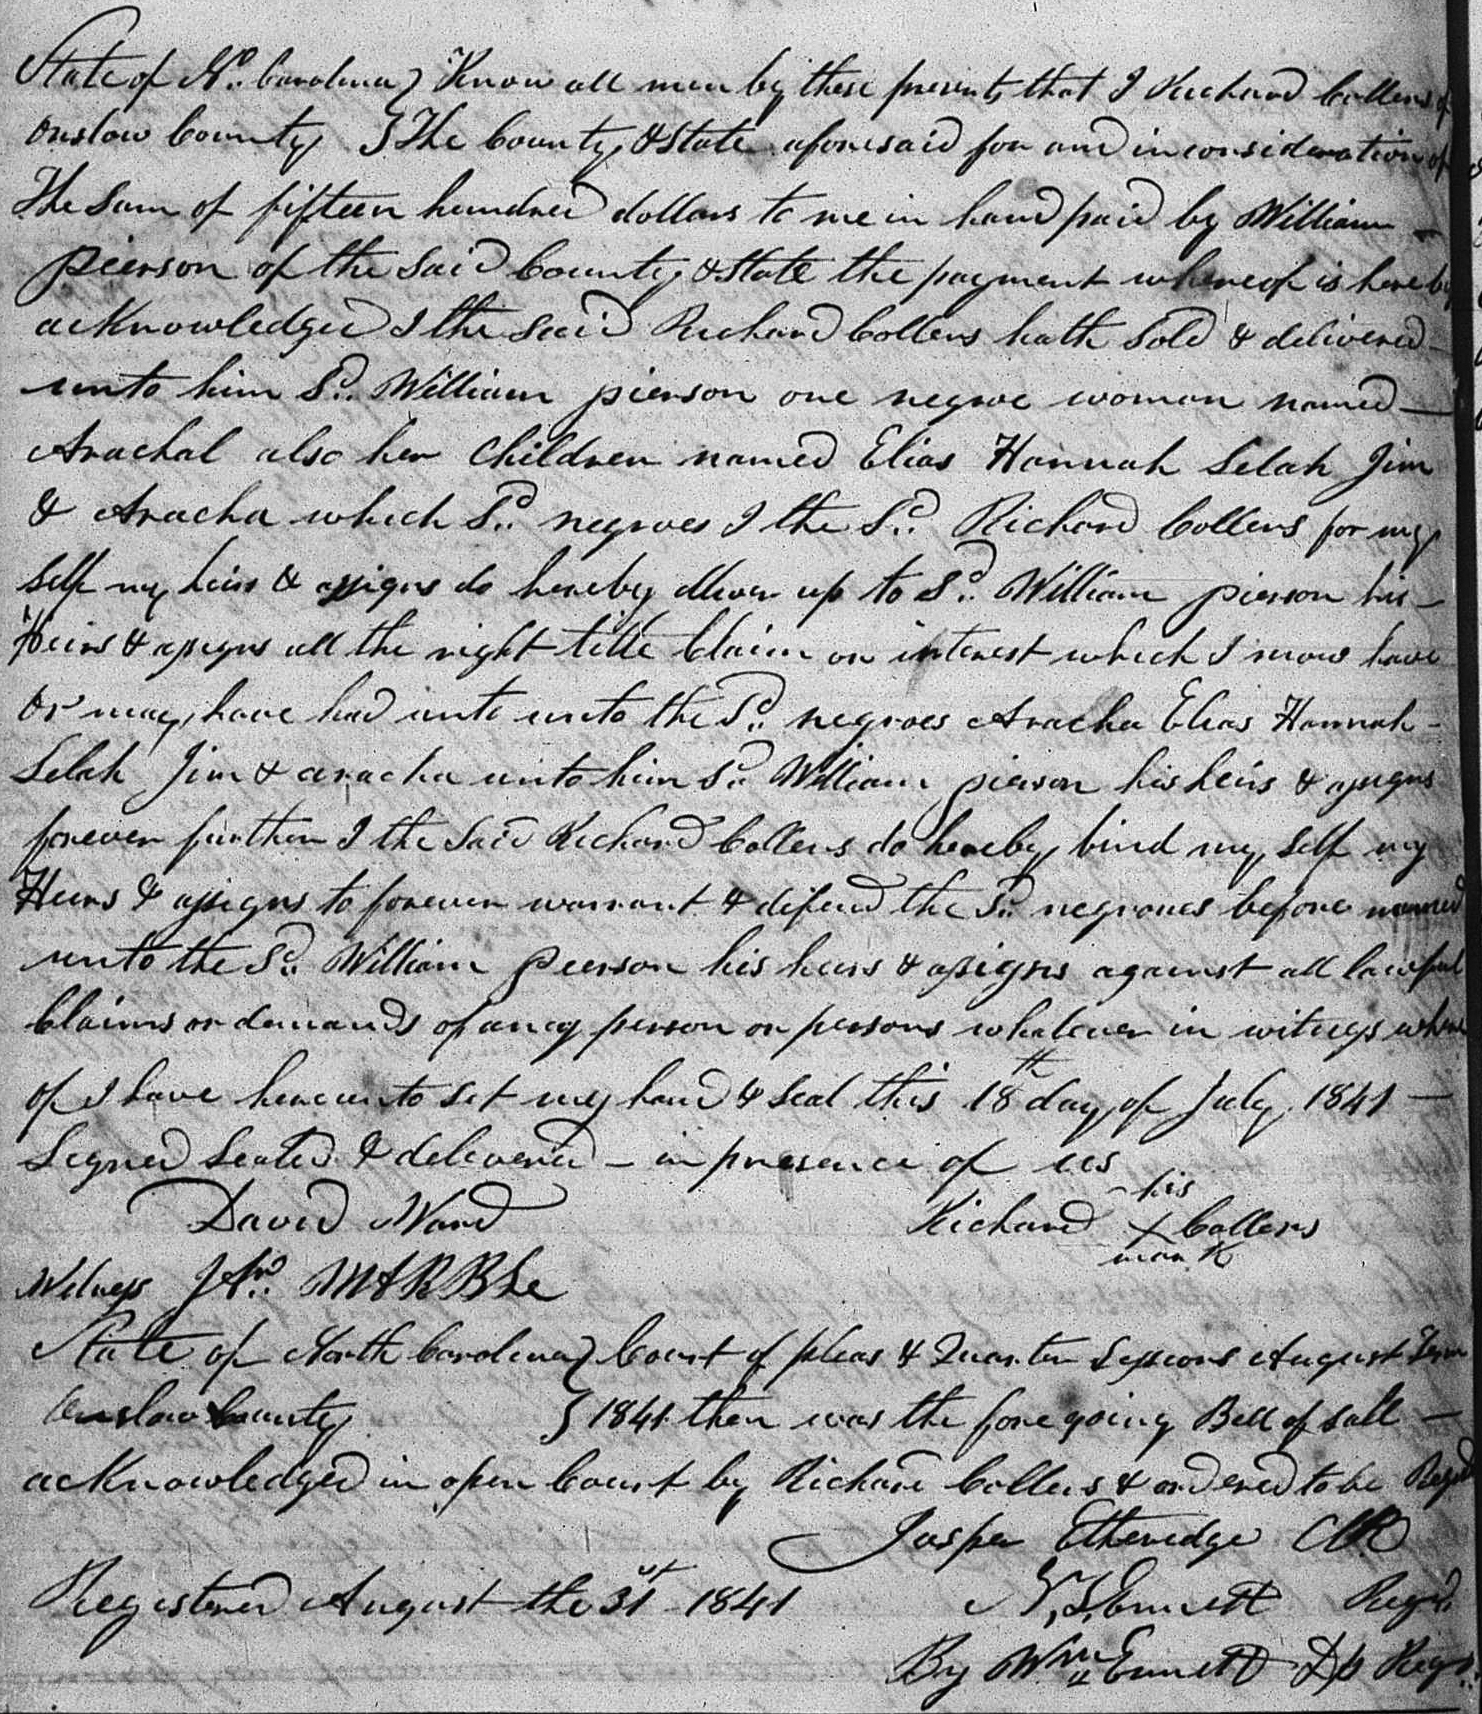 State of No. Carolina } Know all men by these presents that I Richard Collens of
Onslow County } The County & State aforesaid for and in consideration of
The Sum of fifteen hundred dollars to me in hand paid by William
pierson of the Said County & State the payment whereof is hereby
acknowledged I the Said Richard Collens hath Sold & delivered
unto him Sd. William pierson one negroe woman named
Arachal also her Children named Elias Hannah Selah Jim
& Aracha which Sd. negroes I the Sd. Richard Collens for my
Self my heirs & assigns do hereby up to Sd. William pierson his
Heirs & assigns all the right title Claim or interest which I now have
Or may have had unto unto the Sd. negroes Aracha Elias Hannah
Selah Jim & aracha unto him Sd. William pierson his heirs & assigns
forever further I the Said Richard Collens do hereby bind my Self my
Heirs & assigns to forever warrant & defend the Sd. negroues before named
unto the Sd. William pierson his heirs & assigns against all lawful
Claims or demands of any person or persons whatever in witness where
of I have hereunto Set my hand & Seal this 18th day of July 1841
Signed Sealed & delevered - in presence of us
David Ward Richard his X mark Collens
Witness Jno. MARBLe
State of North Carolina } Court of pleas & Quarter Sessions August Term
Onslow County } 1841 then was the fore going Bill of Sale
acknowledged in open Court by Richard Collens & ordered to be Regd
Jasper Etheredge Clk
Registered August the 31st 1841 Ennett Regr.
By Wm Ennett Dp Regr.